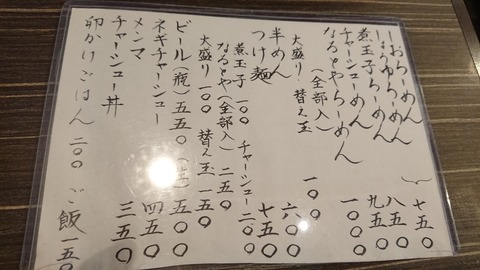 しおらーめん
しょうゆらーめん 〜 七五〇
煮玉子らーめん 八五〇
チャーシューめん 九五〇
なるとやらーめん 一〇〇〇
(全部入)
大盛り 替え玉 一〇〇
半めん 六〇〇
つけ麺 七五〇
煮玉子 一〇〇 チャーシュー 二〇〇
なるとや(全部入) 二五〇
大盛り 一〇〇 替え玉 一五〇
ビール(瓶) 五五〇 (生) 五〇〇
ネギチャーシュー 四五〇
メンマ
チャーシュー丼 三五〇
卵かけごはん 二〇〇 ご飯 一五〇